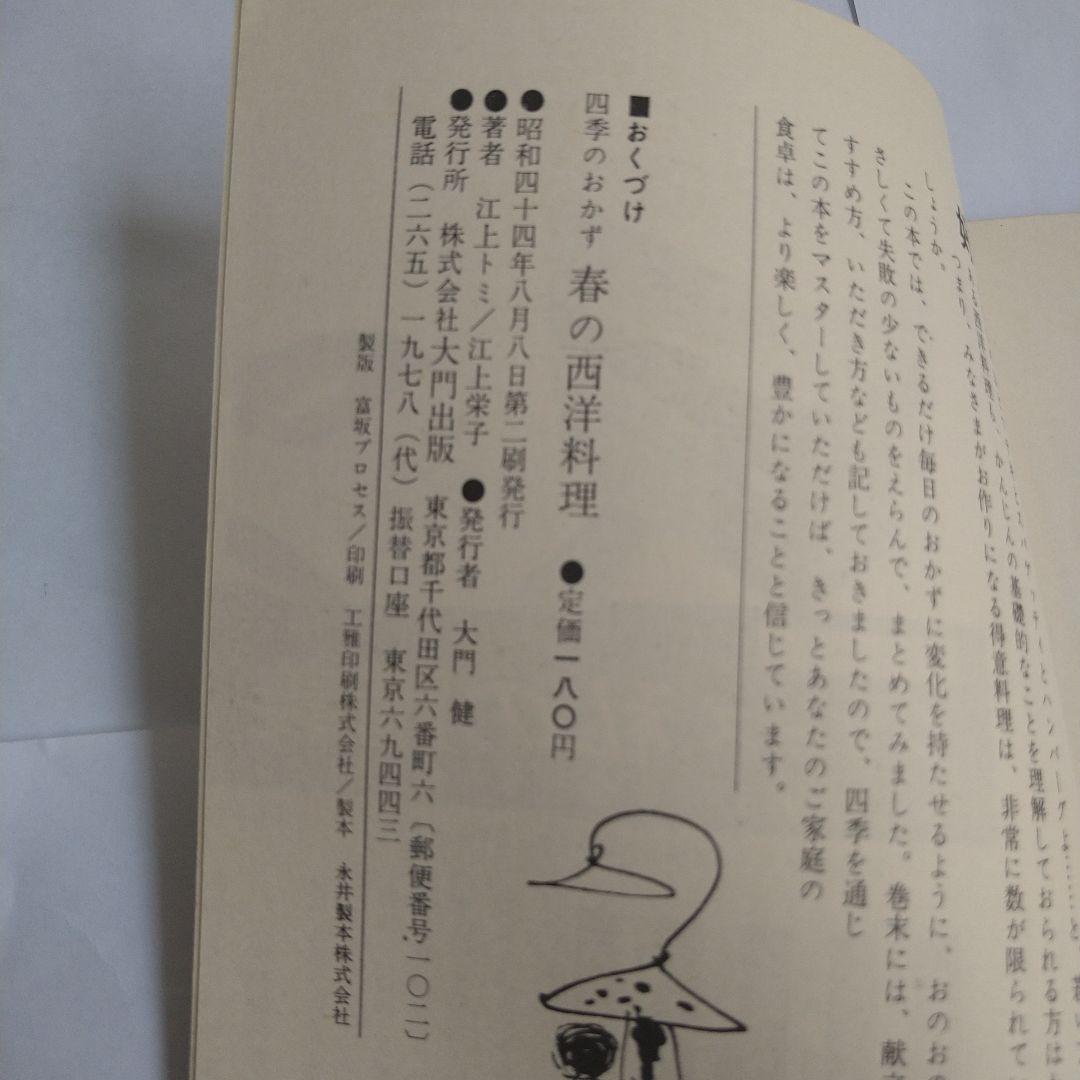 つまり、みなさまがお作りになる得意料理は、非常に数が限られて
しょうか。
この本では、できるだけ毎日のおかずに変化を持たせるように、おのおの
さしくて失敗の少ないものをえらんで、まとめてみました。巻末には、献立
すすめ方、いただき方なども記しておきましたので、四季を通じ
てこの本をマスターしていただけば、きっとあなたのご家庭の
食卓は、より楽しく、豊かになることと信じています。
■おくづけ
四季のおかず 春の西洋料理 ●定価一八〇円
●昭和四十四年八月八日第二刷発行
●著者 江上トミ/江上栄子 ●発行者 大門 健
●発行所 株式会社大門出版 東京都千代田区六番町六〔郵便番号一〇二〕
電話(二六五)一九七八(代) 振替口座 東京六九四四三
製版 富坂プロセス/印刷 工雅印刷株式会社/製本 永井製本株式会社